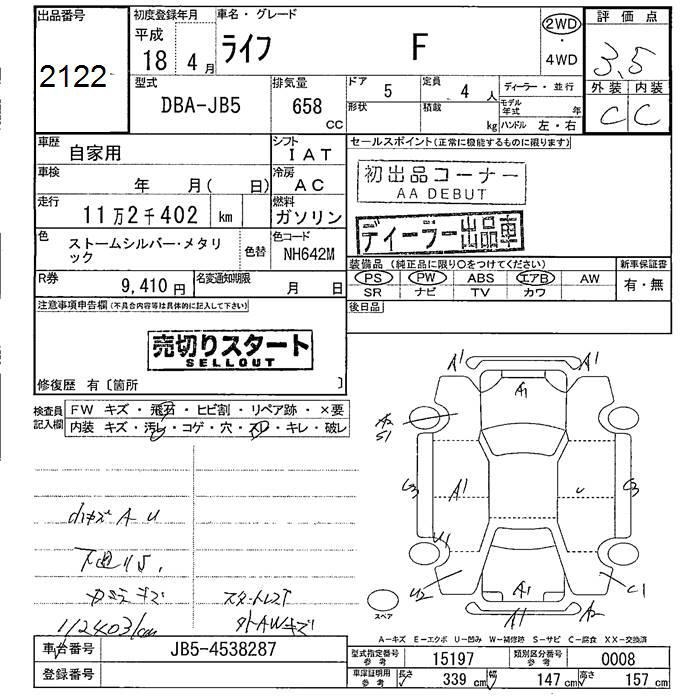 出品番号 初度登録年月 車名・グレード 評価点
2122 平成 18 4月 ライフ F 2WD・4WD 3.5
型式 排気量 ドア 定員 ディーラー・並行 外装 内装
DBA-JB5 658 CC 5 4 人 モデル年式 年 C C
形状 積載 kg ハンドル 左・右
車歴 シフト セールスポイント(正常に機能するものに限ります)
自家用 IAT
車検 冷房 初出品コーナー
年 月( 日) AC AA DEBUT
走行 燃料
11万2千402 km ガソリン ディーラー出品車
色 色替 色コード
ストームシルバー・メタリ
ック NH642M
装備品(純正品に限り〇をつけてください) 新車保証書
R券 名変通知期限 PS PW ABS エアB AW 有・無
9,410円 月 日 SR ナビ TV カワ
注意事項申告欄(不具合内容等は具体的に記入して下さい) 後日品
売切りスタート
SELLOUT
修復歴 有〔箇所 〕
検査員 FW キズ・飛石・ヒビ割・リペア跡・×要
記入欄 内装 キズ・汚レ・コゲ・穴・スレ・キレ・破レ
A1 A1
A1
A2
S1
C3 A1 C3
小キズ A U
U1
下廻りS,
U2 A1 C1
ガラスキズ スタートレス
112403km 外AWキズ
A1 A2
スペア
A-キズ E-エクボ U-凹み W-補修跡 S-サビ C-腐食 XX-交換済
車台番号 JB5-4538287 型式指定番号 参考 15197 類別区分番号 参考 0008
登録番号 車庫証明用 参考 長さ 339 cm 幅 147 cm 高さ 157 cm